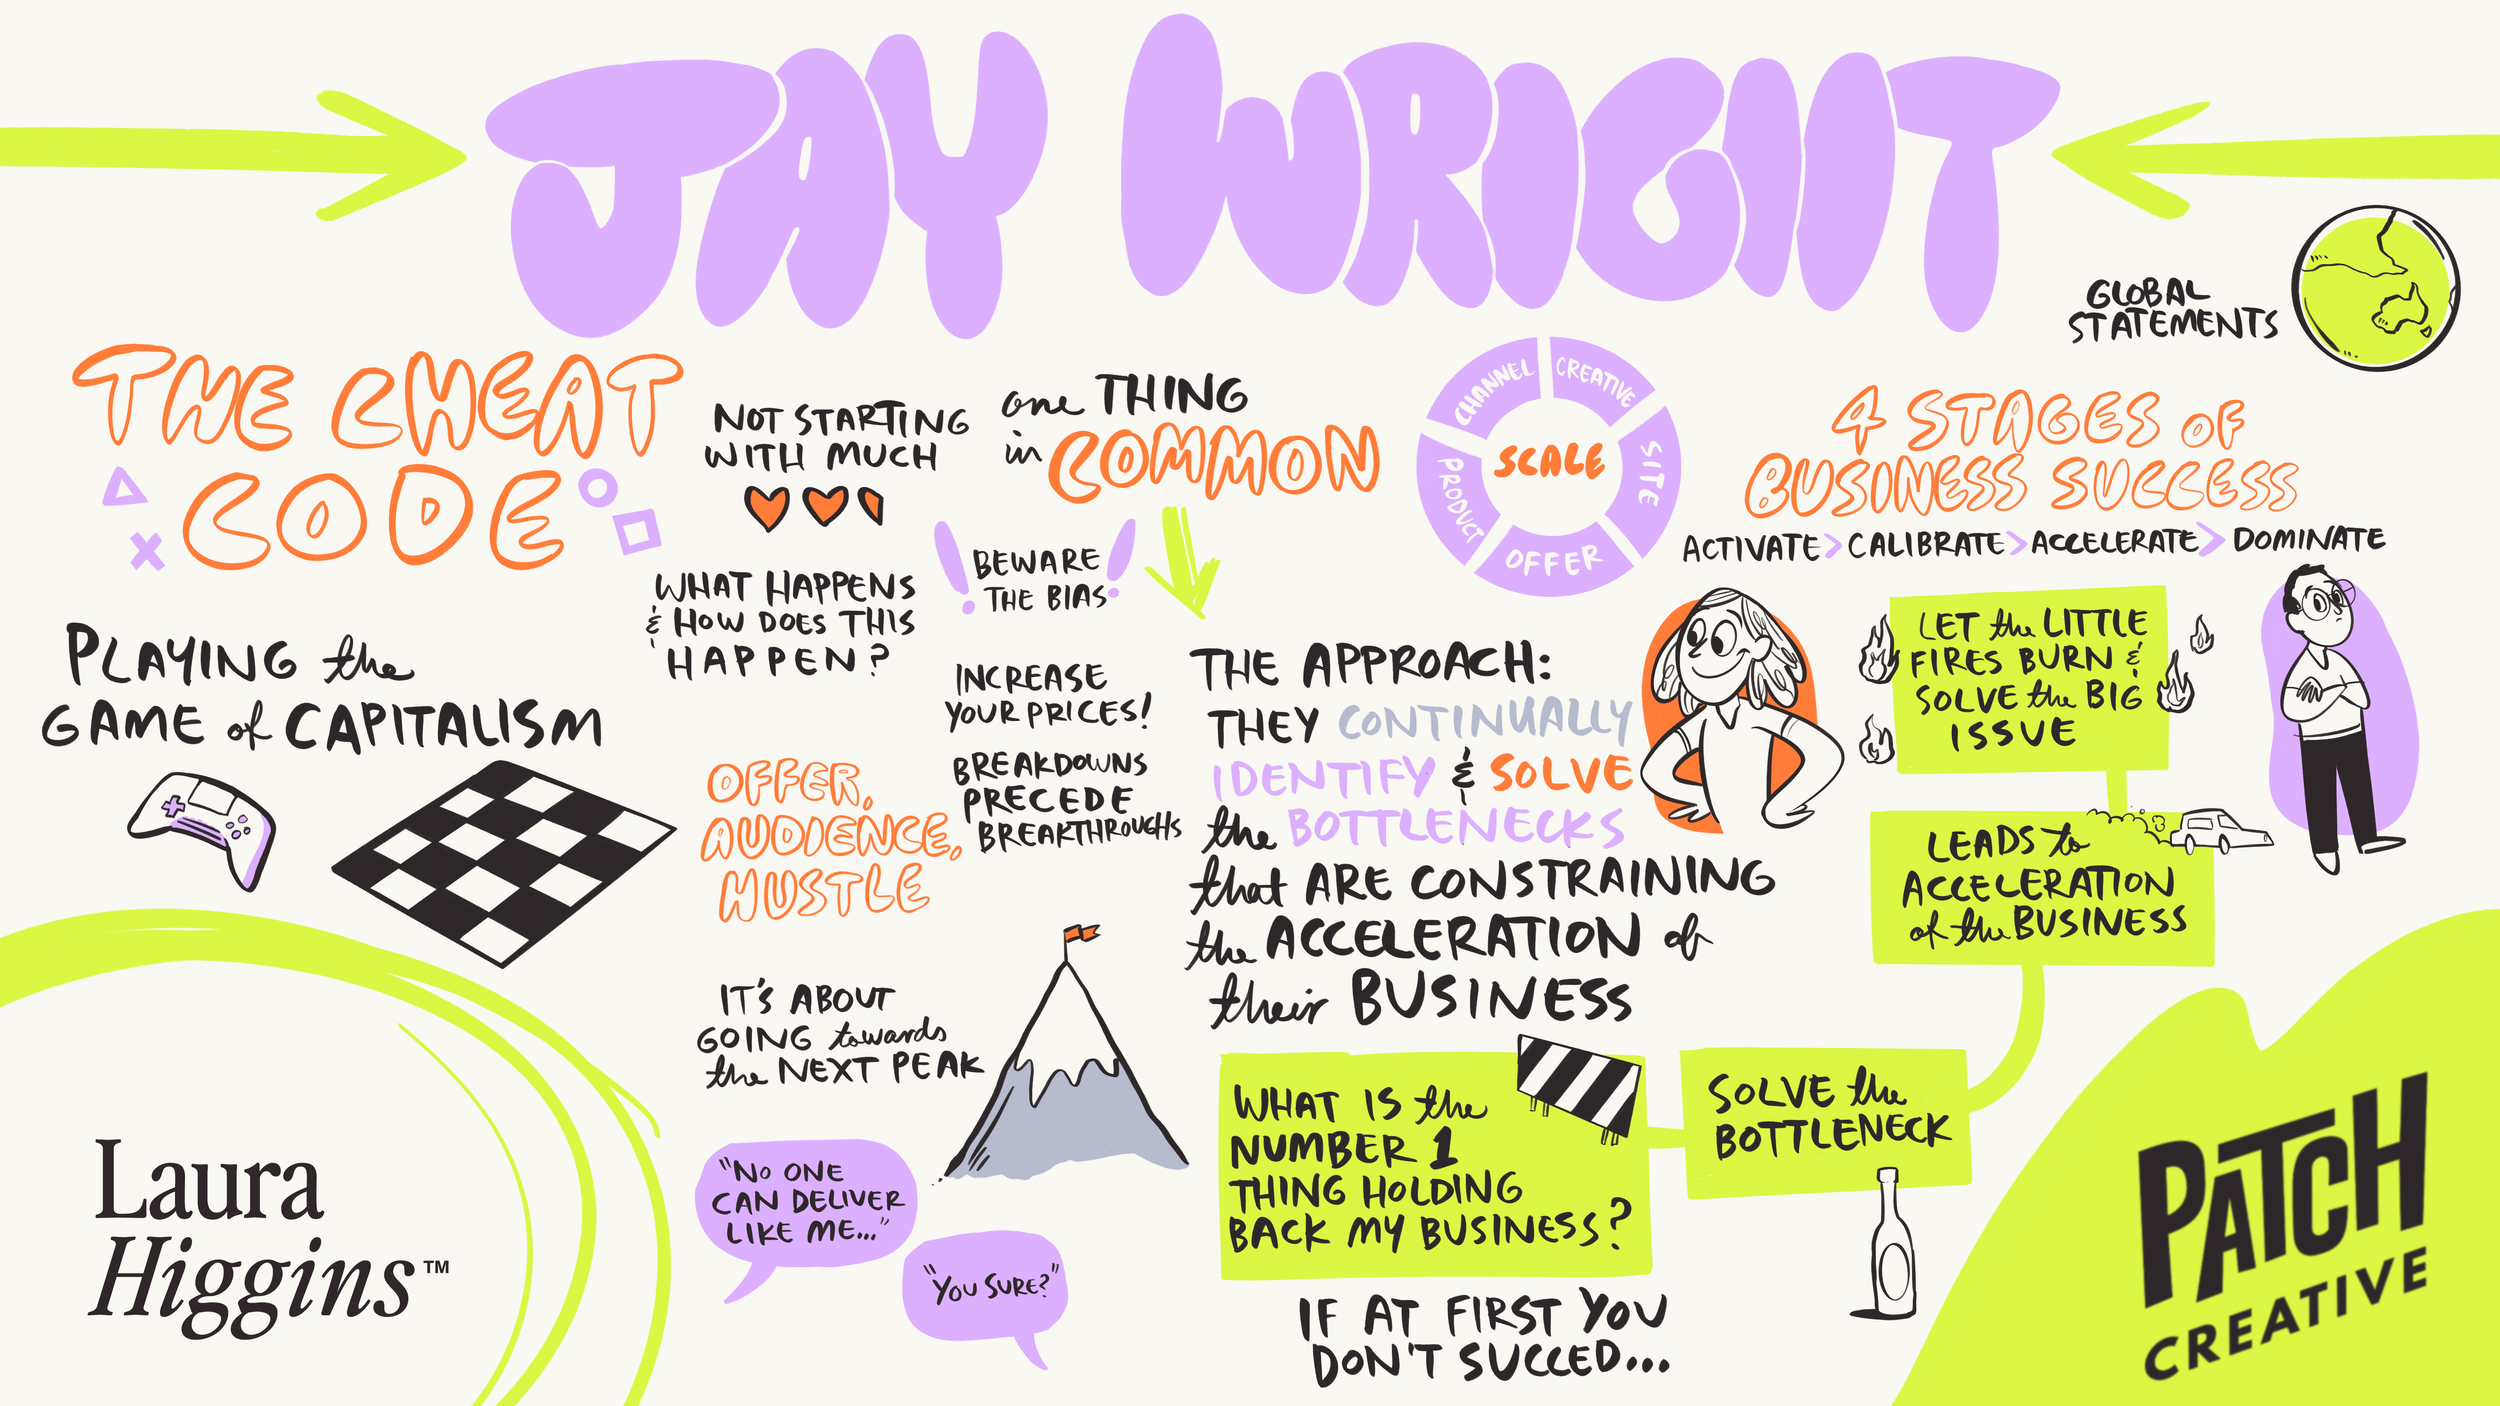 JAY WRIGHT
GLOBAL
STATEMENTS
THE CHEAT
CODE
PLAYING the
GAME of CAPITALISM
NOT STARTING
WITH MUCH
WHAT HAPPENS
& HOW DOES THIS
HAPPEN?
OFFER,
AUDIENCE,
HUSTLE
IT'S ABOUT
GOING towards
the NEXT PEAK
"NO ONE
CAN DELIVER
LIKE ME..."
"YOU SURE?"
one THING
in COMMON
BEWARE
THE BIAS
INCREASE
YOUR PRICES!
BREAKDOWNS
PRECEDE
BREAKTHROUGHS
CHANNEL
CREATIVE
SITE
OFFER
PRODUCT
SCALE
THE APPROACH:
THEY CONTINUALLY
IDENTIFY & SOLVE
the BOTTLENECKS
that ARE CONSTRAINING
the ACCELERATION of
their BUSINESS
WHAT IS the
NUMBER 1
THING HOLDING
BACK MY BUSINESS?
IF AT FIRST YOU
DON'T SUCCED...
4 STAGES OF
BUSINESS SUCCESS
ACTIVATE > CALIBRATE > ACCELERATE > DOMINATE
LET the LITTLE
FIRES BURN &
SOLVE the BIG
ISSUE
LEADS to
ACCELERATION
of the BUSINESS
SOLVE the
BOTTLENECK
Laura
Higgins™
PATCH
CREATIVE